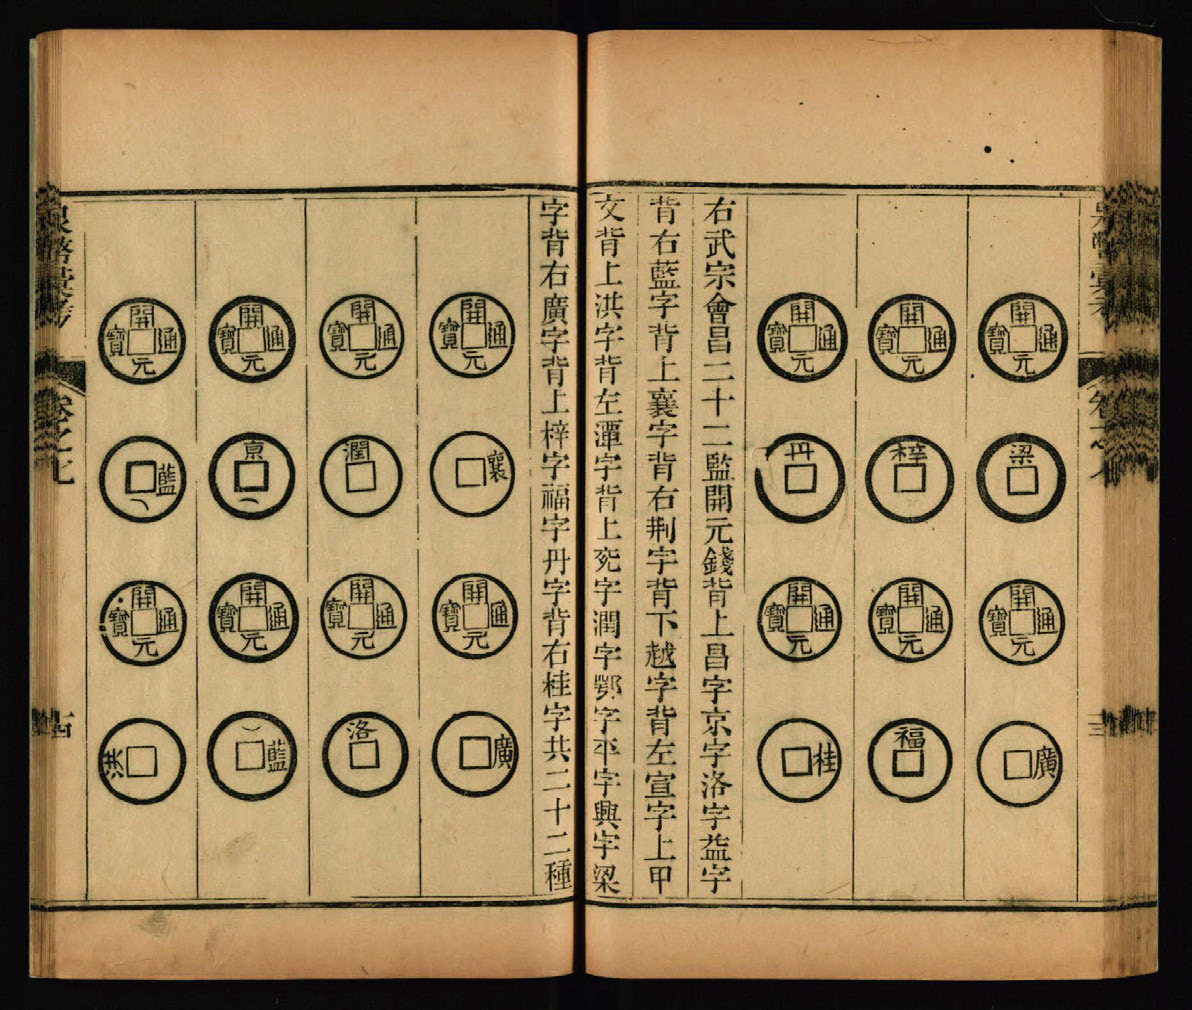 開元通寶
梁
開元通寶
廣
開元通寶
梓
開元通寶
福
開元通寶
丹
開元通寶
桂
右武宗會昌二十二監開元錢背上昌字京字洛字益字
背右藍字背上襄字背右荆字背下越字背左宣字上甲
文背上洪字背左潭字背上兖字潤字鄂字平字興字梁
字背右廣字背上梓字福字丹字背右桂字共二十二種
開元通寶
襄
開元通寶
廣
開元通寶
潤
開元通寶
洛
開元通寶
京
開元通寶
藍
開元通寶
藍
開元通寶
洪
泉幣彙考
卷之